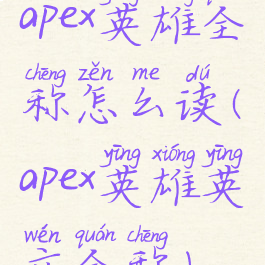 apex英雄全
chēng zěn me dú
称怎么读(
yīng xióng yīng
apex英雄英
wén quán chēng
文全称)